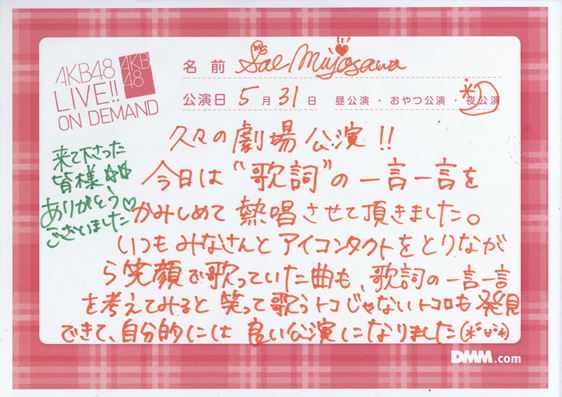 AKB48
LIVE!!
ON DEMAND
AKB
48
名前 Sae Miyazawa
公演日 5月31日 昼公演・おやつ公演・夜公演
来て下さった
皆様
ありがとう♡
ございました
久々の劇場公演!!
今日は“歌詞”の一言一言を
かみしめて熱唱させて頂きました。
いつもみなさんとアイコンタクトをとりなが
ら笑顔で歌っていた曲も、歌詞の一言一言
を考えてみると笑って歌うトコじゃないトコロも発見
できて、自分的には良い公演になりました
DMM.com